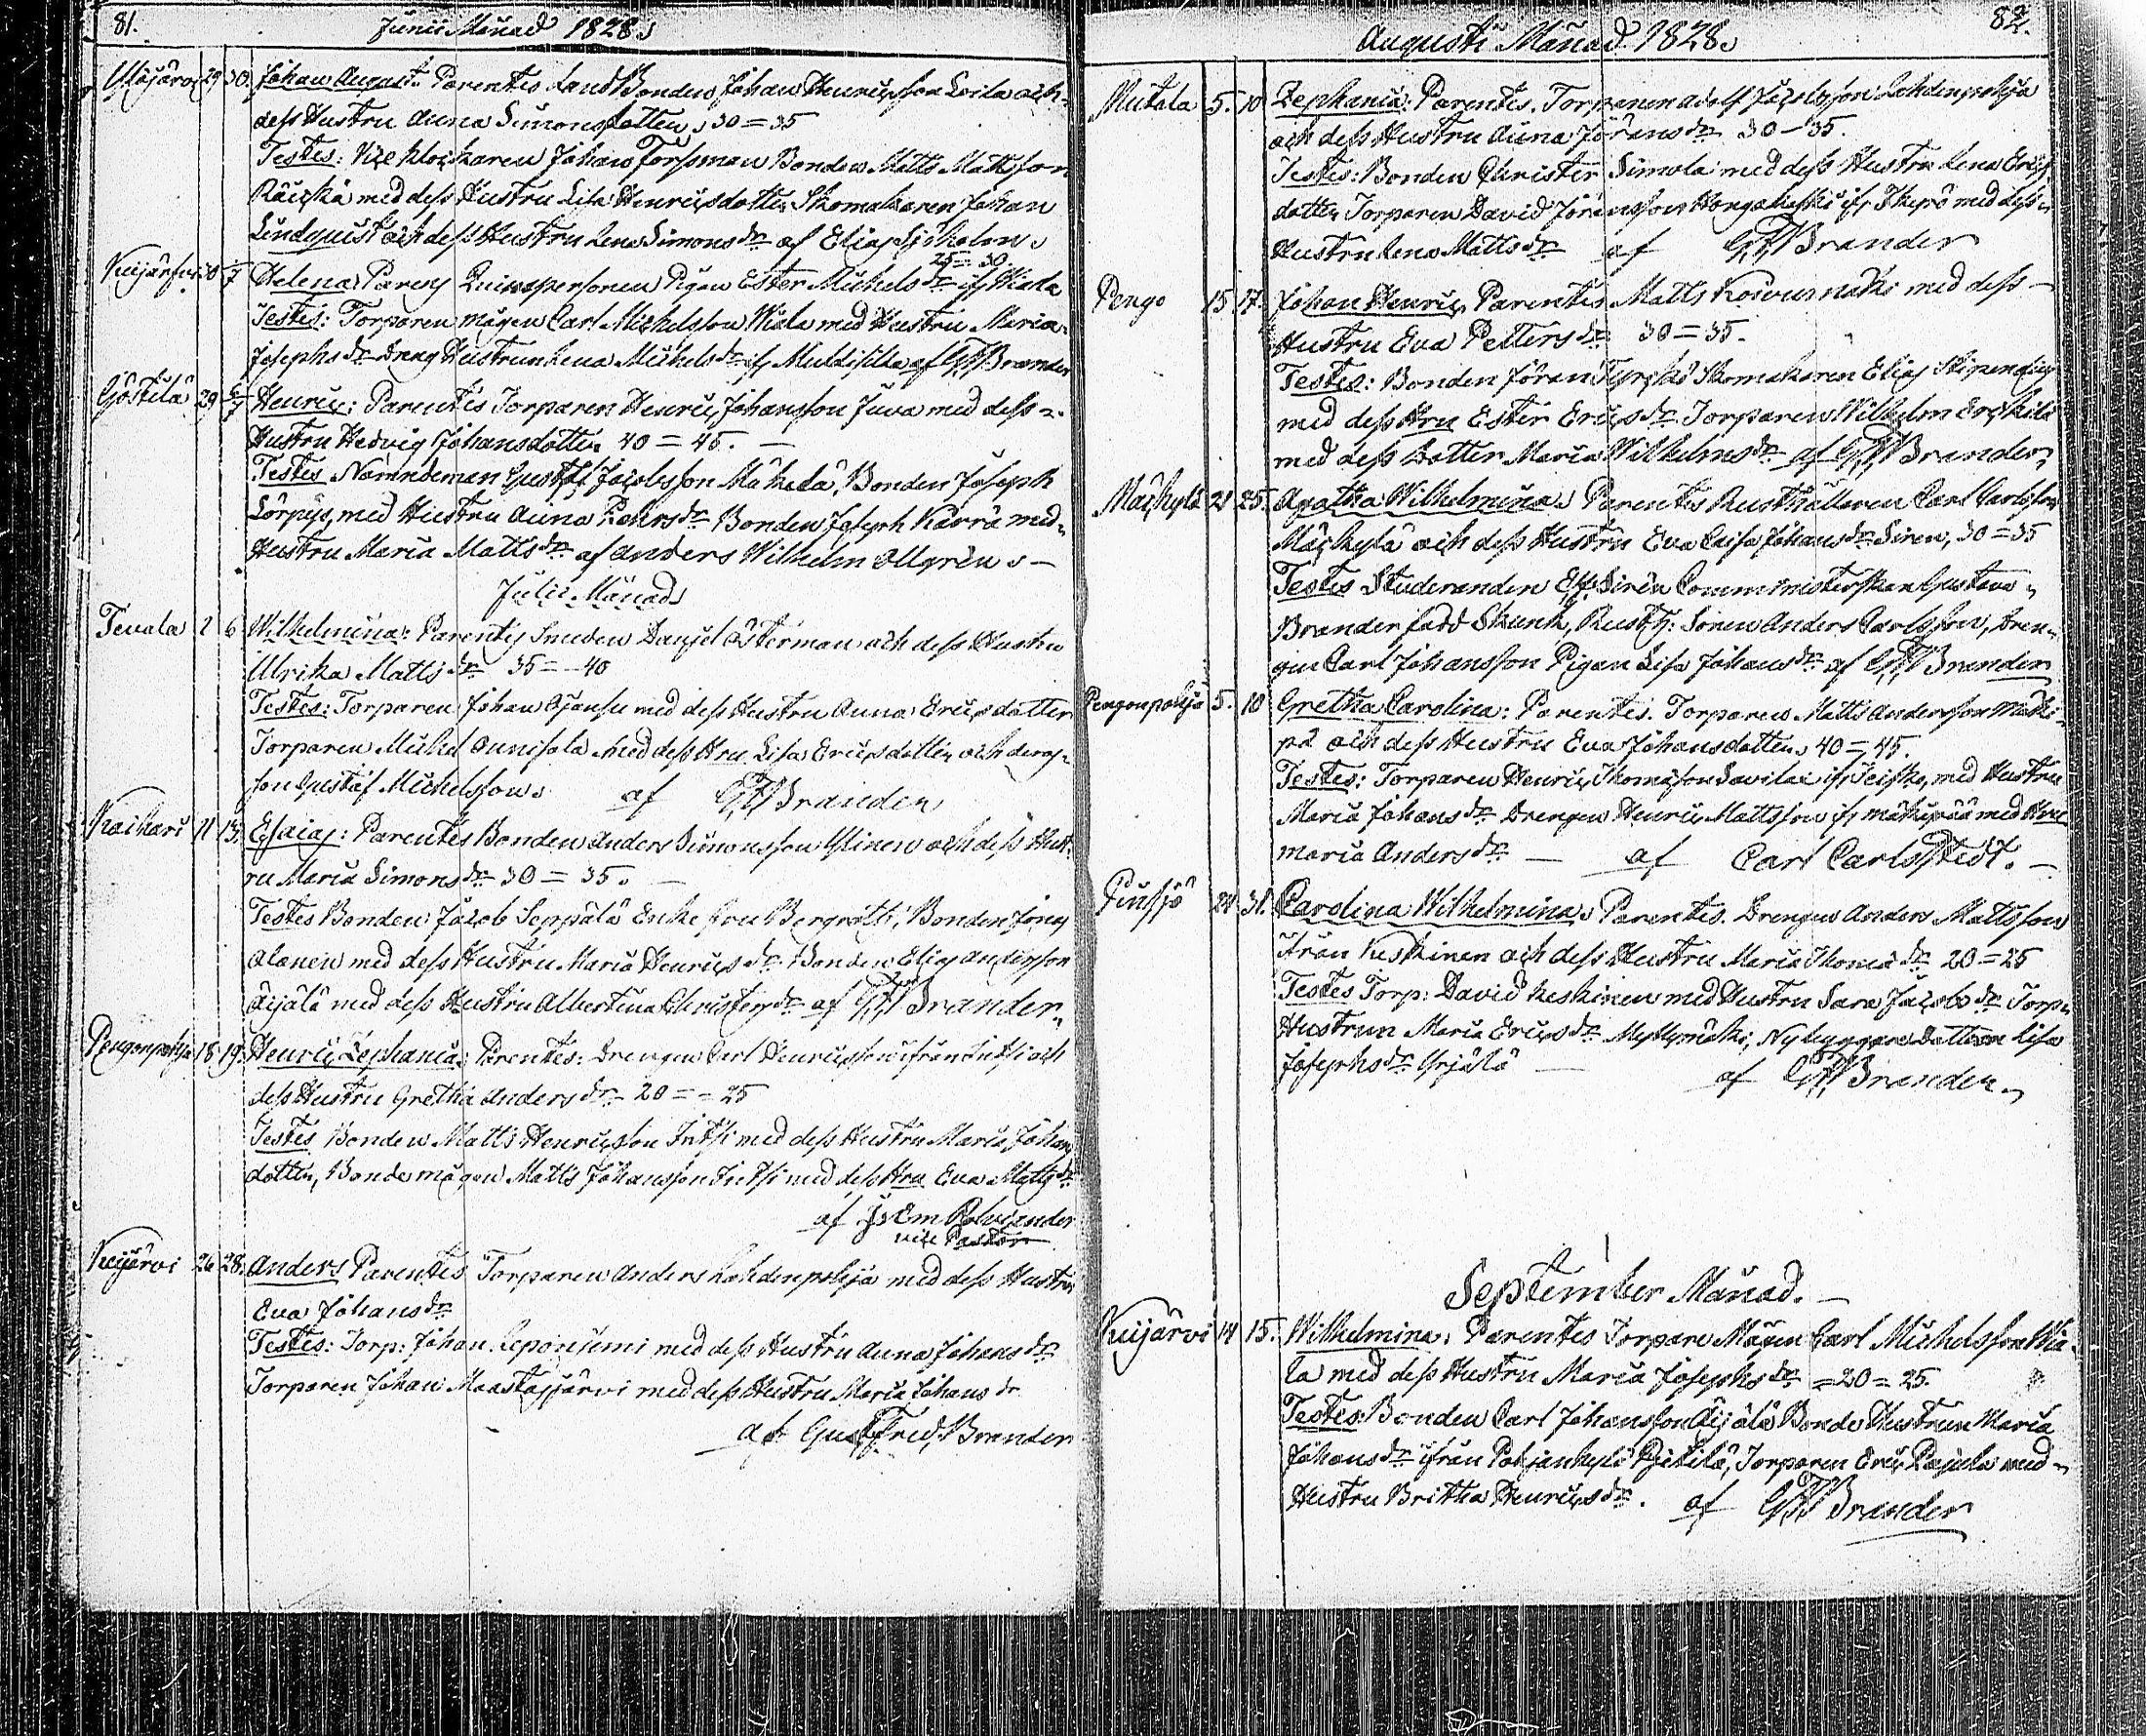 81. Junii Månad 1828.
Ylöjärvi 29 30. Johan August. Parentes Landbonden Johan Henricsson Loila och
dess Hustru Anna Simonsdotter, 30=35
Testes: Vice klockaren Johan Forssman Bonden Matts Mattsson
Räickä med dess Hustru Lisa Henricsdotter Skomakaren Johan
Lindquist och dess Hustru Lena Simonsdr af Elias Sjöholm
25=30.
Kuijärfvi 30 Helena Parens Quinspersonen Pigan Ester Michelsdr ifr Wiala
Testes: Torparen mågen Carl Michelsson Wiala med Hustru Maria
Josephsdr Dreng Hustrun Lena Michelsdr ifr af GFBrander
Göstilä 29 Henric: Parentes Torparen Henric Johansson Juva med dess
Hustru Hedvig Johansdotter 40=45.
Testes Nämndeman Gustaf Jacobsson Mäkelä, Bonden Joseph
Lörpys, med Hustru Anna Bonden Joseph Kärrä med
Hustru Maria Mattsdr af Anders Wilhelm Allgrén
Julii Månad
Tevala 2 6 Wilhelmina: Parentes Smeden Daniel Österman och dess Hustru
Ulrika Mattsdr 35=40
Testes: Torparen Johan Ojansu med dess Hustru Anna Ericsdotter
Torparen Michel Annisala med dess Hru Lisa Ericsdotter och deras
son Gustaf Michelsson. af GFBrander
Kaihari 11 13. Esaias: Parentes Bonden Anders Simonsson Ylinen och dess Hust-
ru Maria Simonsdr 30=35.
Testes Bonden Jacob Seppälä Enke fru Bergroth, Bonden Jonas
Alanen med dess Hustru Maria Henricsdr Bonden Elias Andersson
Äijälä med dess Hustru Albertina Christersdr af GFBrander
Pengonpohja 18 19. Henric Zephania: Parentes: Drengen Carl Henricsson ifrån Intti och
dess Hustru Gretha Andersdr 20=25
Testes Bonden Matts Henricsson Intti med dess Hustru Maria Johans
dotter, Bonde mågen Matts Johansson Intti med dess Hru Eva Mattsdr
af Is: Em Polviander
vice Pastor
Kuijärvi 26 28. Anders Parentes Torparen Anders Lahdenpohja med dess Hustru
Eva Johansdr
Testes: Torp: Johan Leponiemi med dess Hustru Anna Johansdr
Torparen Johan Maastajärvi med dess Hustru Maria Johansdr
af Gust: Fred: Brander
Augusti Månad 1828. 82.
Mutala 5. 10 Zephania: Parentes. Torparen Adolf Jacobsson Lahdenpohja
och dess Hustru Anna Jöransdr 30-35.
Testes: Bonden Christer Simola med dess Hustru Lena Erics
dotter Torparen David Jöransson Hongakoski ifr Ikerö med dess
Hustru Lena Mattsdr af GFBrander
Pengo 15 17. Johan Henric, Parentes Matts Koivumäki med dess
Hustru Eva Pettersdr 30=35.
Testes: Bonden Jöran Tyrckö Skomakaren Elias Stipendius
med dess Hru Ester Ericsdr Torparen Wilhelm Erckilä
med dess Dotter Maria Wilhelmsdr af GFBrander
Mäckylä 21 25. Agatha Wilhelmina, Parentes Rusthållaren Carl Carlsson
Mäckylä och dess Hustru Eva Caisa Johansdr Siren, 30=35
Testes Studeranden Siren Comministerskan Gustava
Brander född Skunk, Rusth: Sonen Anders Carlsson, Dren-
gen Carl Johansson Pigan Lisa Johansdr af GFBrander
Pengonpohja 5. 10 Gretha Carolina: Parentes. Torparen Matts Andersson Mäki-
pä och dess Hustru Eva Johansdotter 40=45.
Testes: Torparen Henric Thomasson Savilax ifr Teisko, med Hustru
Maria Johansdr Drengen Henric Mattsson ifr mäkipää med Hru
Maria Andersdr af Carl Carlstedt.
Pinsjö 24 31. Carolina Wilhelmina, Parentes. Drengen Anders Mattsson
från Keskinen och dess Hustru Maria Thomædr 20=25
Testes Torp: David Keskinen med Hustru Sara Jacobsdr Torp:
Hustrun Maria Ericsdr Myllymäki, Nybyggare Dottern Lisa
Josephsdr Yrjälä af GFBrander
September Månad.
Kuijärvi 14 15. Wilhelmina, Parentes Torpare Mågen Carl Michelsson Wia-
la med dess Hustru Maria Josephsdr =20=25.
Testes: Bonden Carl Johansson Äijälä Bonde Hustrun Maria
Johansdr ifrån Pohjankylä Pietilä, Torparen Eric Pajula med
Hustru Britha Henricsdr. af GFBrander